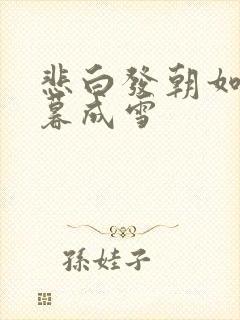 悲白發朝如
暮成雪
孫娃子